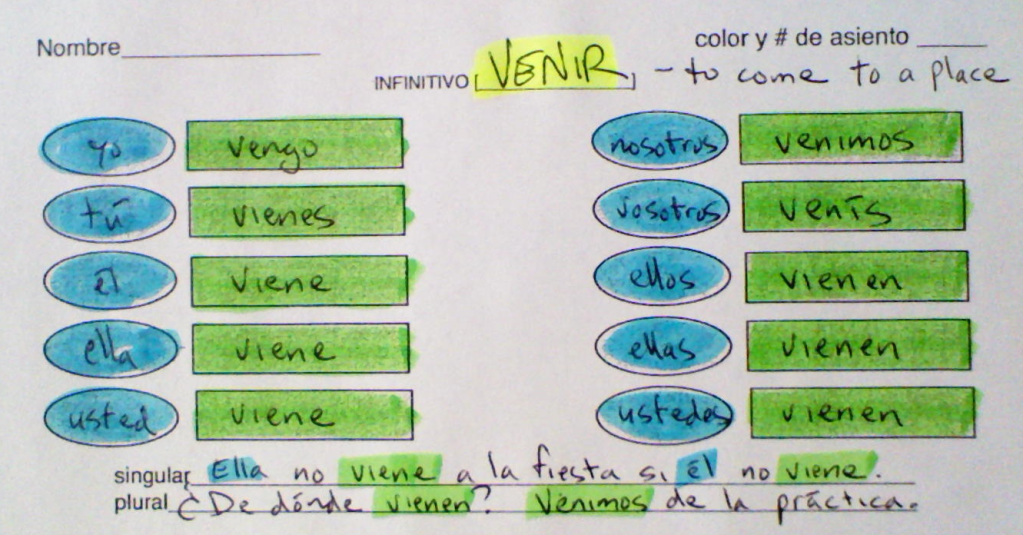 Nombre color y # de asiento
INFINITIVO [VENIR] - to come to a place
yo vengo nosotros venimos
tú vienes vosotros venís
él viene ellos vienen
ella viene ellas vienen
usted viene ustedes vienen
singular Ella no viene a la fiesta si él no viene.
plural ¿De dónde vienen? Venimos de la práctica.